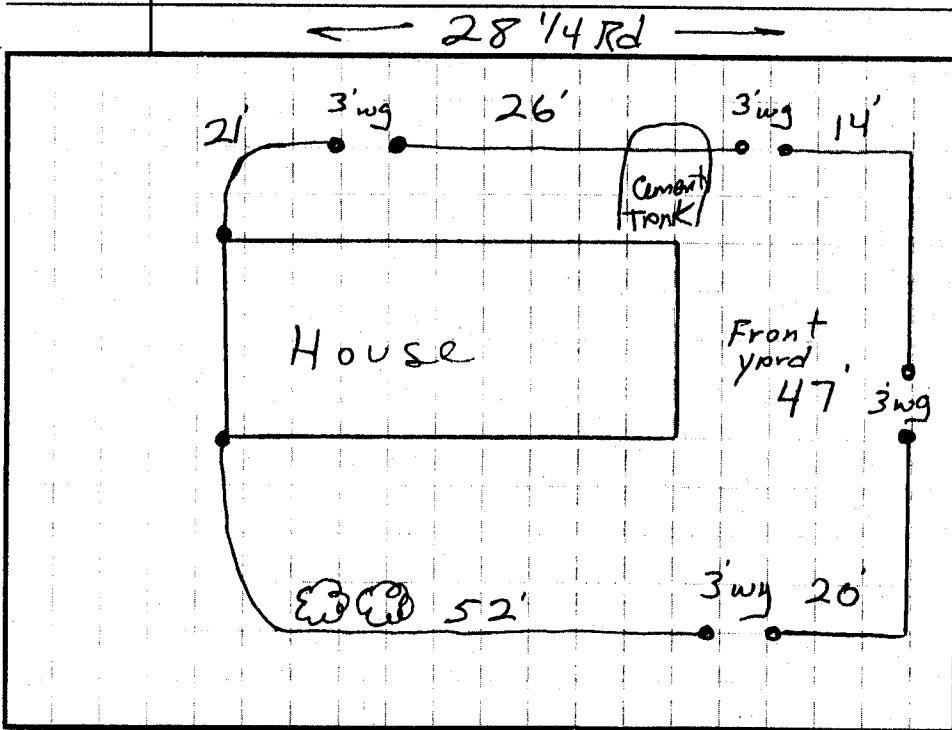 28 1/4 Rd
21'
3'wg
26'
3'wg
14'
Cement
Tank
House
Front
yard
47'
3'wg
52'
3'wg
20'